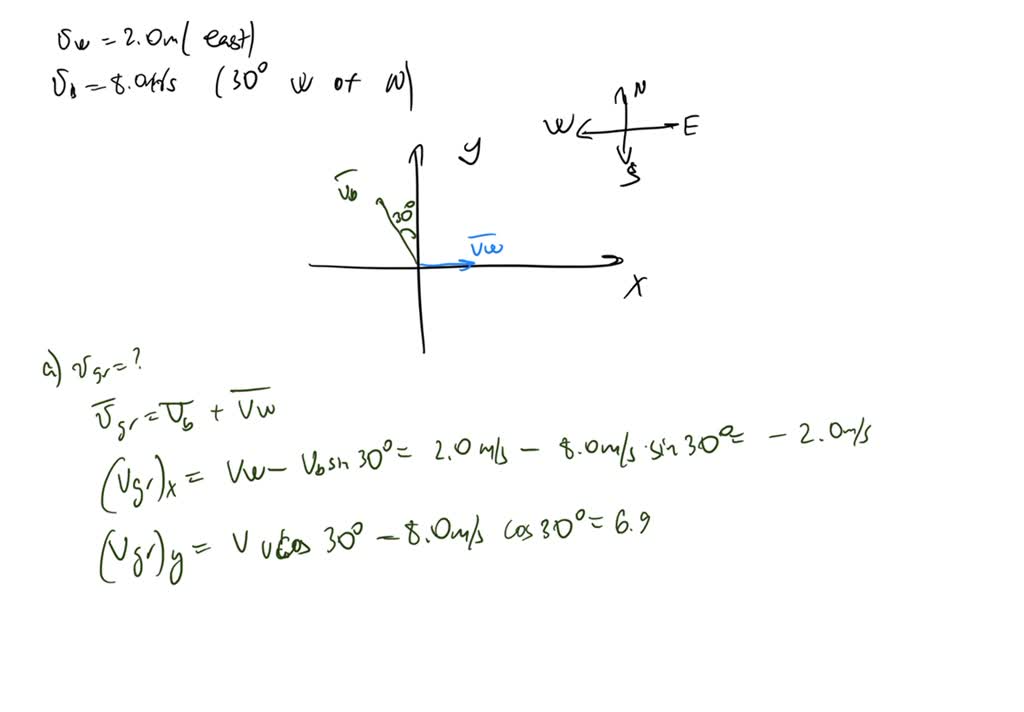 v_w = 2.0m ( east)
v_b = 8.0m/s (30° W of N)
N
W E
S
y
v̅_b 30°
v̅w
x
a) v_gr = ?
v̅_gr = v̅_b + v̅w
(v_gr)_x = v_w - v_b sin 30° = 2.0 m/s - 8.0m/s · sin 30° = - 2.0m/s
(v_gr)_y = cos 30° - 8.0m/s cos 30° = 6.9